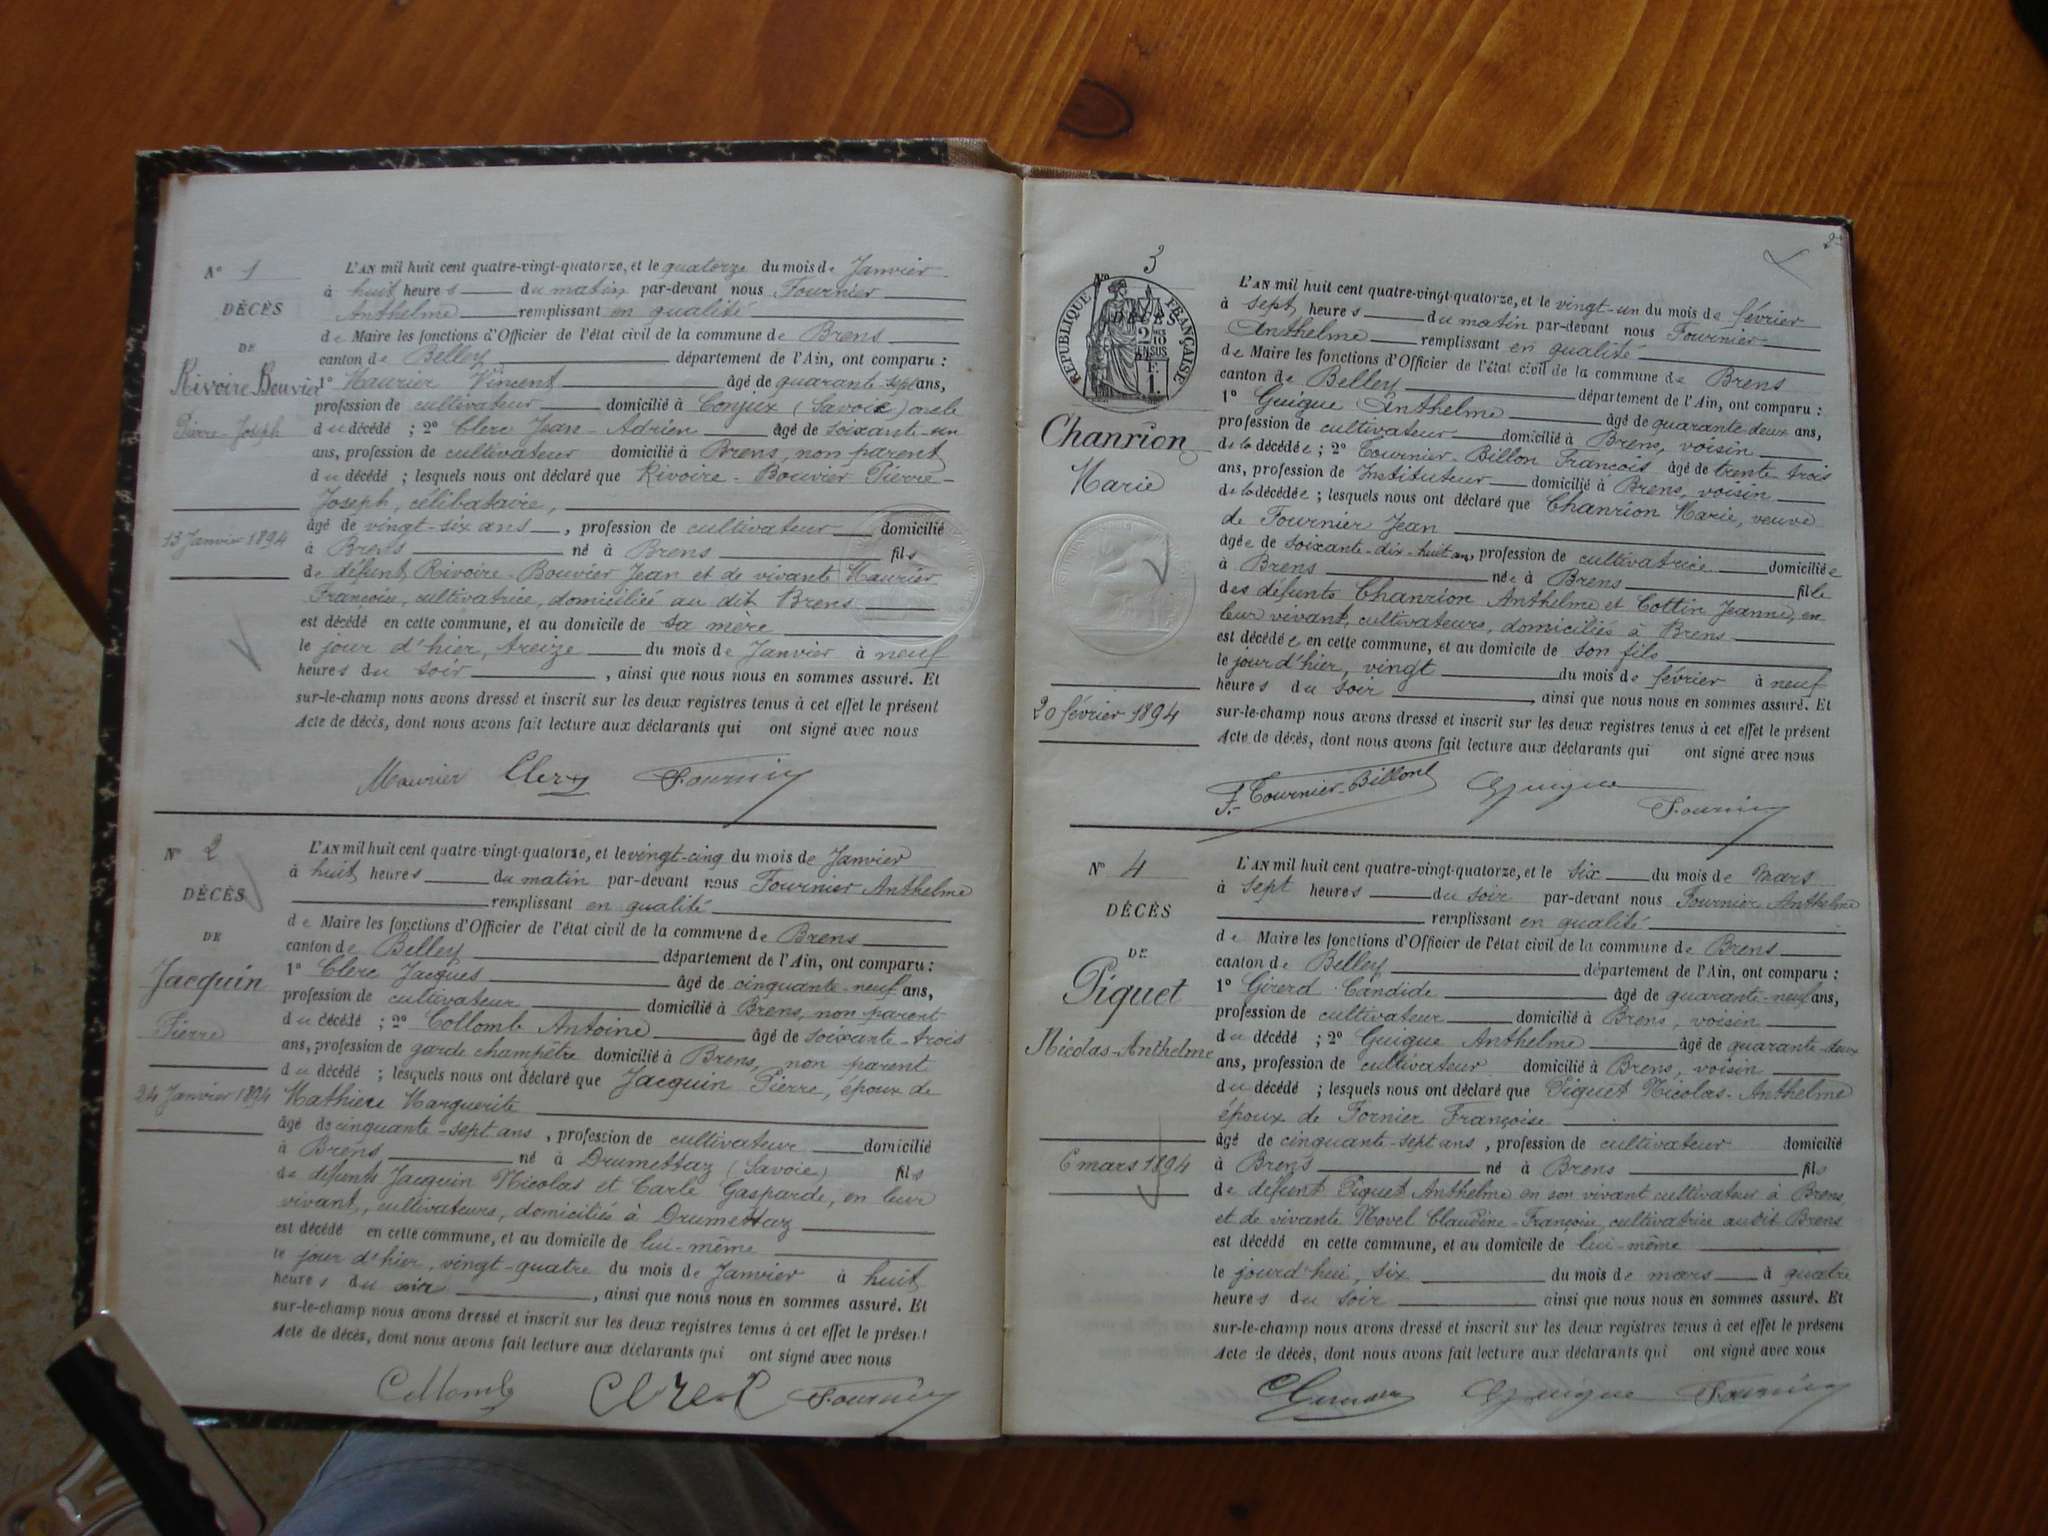 Nº 1
DÉCÈS
DE
Rivoire-Bouvier
Pierre-Joseph
13 Janvier 1894
L'AN mil huit cent quatre-vingt-quatorze, et le quatorze du mois de Janvier
à huit heures du matin par-devant nous Fournier
Anthelme remplissant en qualité
de Maire les fonctions d'Officier de l'état civil de la commune de Brens
canton de Belley département de l'Ain, ont comparu :
1º Maurier Vincent âgé de quarante-sept ans,
profession de cultivateur domicilié à Conjux (Savoie) oncle
du décédé ; 2º Clerc Jean-Adrien âgé de soixante-un
ans, profession de cultivateur domicilié à Brens, non parent
du décédé ; lesquels nous ont déclaré que Rivoire-Bouvier Pierre-
Joseph, célibataire,
âgé de vingt-six ans, profession de cultivateur domicilié
à Brens né à Brens fils
de défunt Rivoire-Bouvier Jean et de vivante Maurier
Françoise, cultivatrice, domiciliée au dit Brens
est décédé en cette commune, et au domicile de sa mère
le jour d'hier, treize du mois de Janvier à neuf
heures du soir, ainsi que nous nous en sommes assuré. Et
sur-le-champ nous avons dressé et inscrit sur les deux registres tenus à cet effet le présent
Acte de décès, dont nous avons fait lecture aux déclarants qui ont signé avec nous
Maurier Clerc Fournier
Nº 2
DÉCÈS
DE
Jacquin
Pierre
24 Janvier 1894
L'AN mil huit cent quatre-vingt-quatorze, et le vingt-cinq du mois de Janvier
à huit heures du matin par-devant nous Fournier Anthelme
remplissant en qualité
de Maire les fonctions d'Officier de l'état civil de la commune de Brens
canton de Belley département de l'Ain, ont comparu :
1º Clerc Jacques âgé de cinquante-neuf ans,
profession de cultivateur domicilié à Brens, non parent
du décédé ; 2º Collomb Antoine âgé de soixante-trois
ans, profession de garde champêtre domicilié à Brens, non parent
du décédé ; lesquels nous ont déclaré que Jacquin Pierre, époux de
Mathieu Marguerite
âgé de cinquante-sept ans, profession de cultivateur domicilié
à Brens né à Drumettaz (Savoie) fils
de défunts Jacquin Nicolas et Carle Gasparde, en leur
vivant, cultivateurs, domiciliés à Drumettaz
est décédé en cette commune, et au domicile de lui-même
le jour d'hier, vingt-quatre du mois de Janvier à huit
heures du soir, ainsi que nous nous en sommes assuré. Et
sur-le-champ nous avons dressé et inscrit sur les deux registres tenus à cet effet le présent
Acte de décès, dont nous avons fait lecture aux déclarants qui ont signé avec nous
Collomb Clerc Fournier
2
Nº 3
RÉPUBLIQUE FRANÇAISE
DÉCÈS
2 10
EN SUS
1
Chanrion
Marie
20 février 1894
L'AN mil huit cent quatre-vingt-quatorze, et le vingt-un du mois de février
à sept heures du matin par-devant nous Fournier
Anthelme remplissant en qualité
de Maire les fonctions d'Officier de l'état civil de la commune de Brens
canton de Belley département de l'Ain, ont comparu :
1º Guigue Anthelme âgé de quarante-deux ans,
profession de cultivateur domicilié à Brens, voisin
de la décédée ; 2º Tournier-Billon François âgé de trente-trois
ans, profession de Instituteur domicilié à Brens, voisin
de la décédée ; lesquels nous ont déclaré que Chanrion Marie, veuve
de Fournier Jean
âgée de soixante-dix-huit ans, profession de cultivatrice domiciliée
à Brens née à Brens fille
des défunts Chanrion Anthelme et Cottin Jeanne, en
leur vivant, cultivateurs, domiciliés à Brens
est décédée en cette commune, et au domicile de son fils
le jour d'hier, vingt du mois de février à neuf
heures du soir, ainsi que nous nous en sommes assuré. Et
sur-le-champ nous avons dressé et inscrit sur les deux registres tenus à cet effet le présent
Acte de décès, dont nous avons fait lecture aux déclarants qui ont signé avec nous
F. Tournier-Billon Guigue Fournier
Nº 4
DÉCÈS
DE
Piguet
Nicolas-Anthelme
6 mars 1894
L'AN mil huit cent quatre-vingt-quatorze, et le six du mois de mars
à sept heures du soir par-devant nous Fournier Anthelme
remplissant en qualité
de Maire les fonctions d'Officier de l'état civil de la commune de Brens
canton de Belley département de l'Ain, ont comparu :
1º Girerd Candide âgé de quarante-neuf ans,
profession de cultivateur domicilié à Brens, voisin
du décédé ; 2º Guigue Anthelme âgé de quarante-deux
ans, profession de cultivateur domicilié à Brens, voisin
du décédé ; lesquels nous ont déclaré que Piguet Nicolas-Anthelme
époux de Fornier Françoise
âgé de cinquante-sept ans, profession de cultivateur domicilié
à Brens né à Brens fils
de défunt Piguet Anthelme en son vivant cultivateur à Brens,
et de vivante Novel Claudine-Françoise, cultivatrice audit Brens
est décédé en cette commune, et au domicile de lui-même
le jourd'hui, six du mois de mars à quatre
heures du soir ainsi que nous nous en sommes assuré. Et
sur-le-champ nous avons dressé et inscrit sur les deux registres tenus à cet effet le présent
Acte de décès, dont nous avons fait lecture aux déclarants qui ont signé avec nous
Guigue Fournier